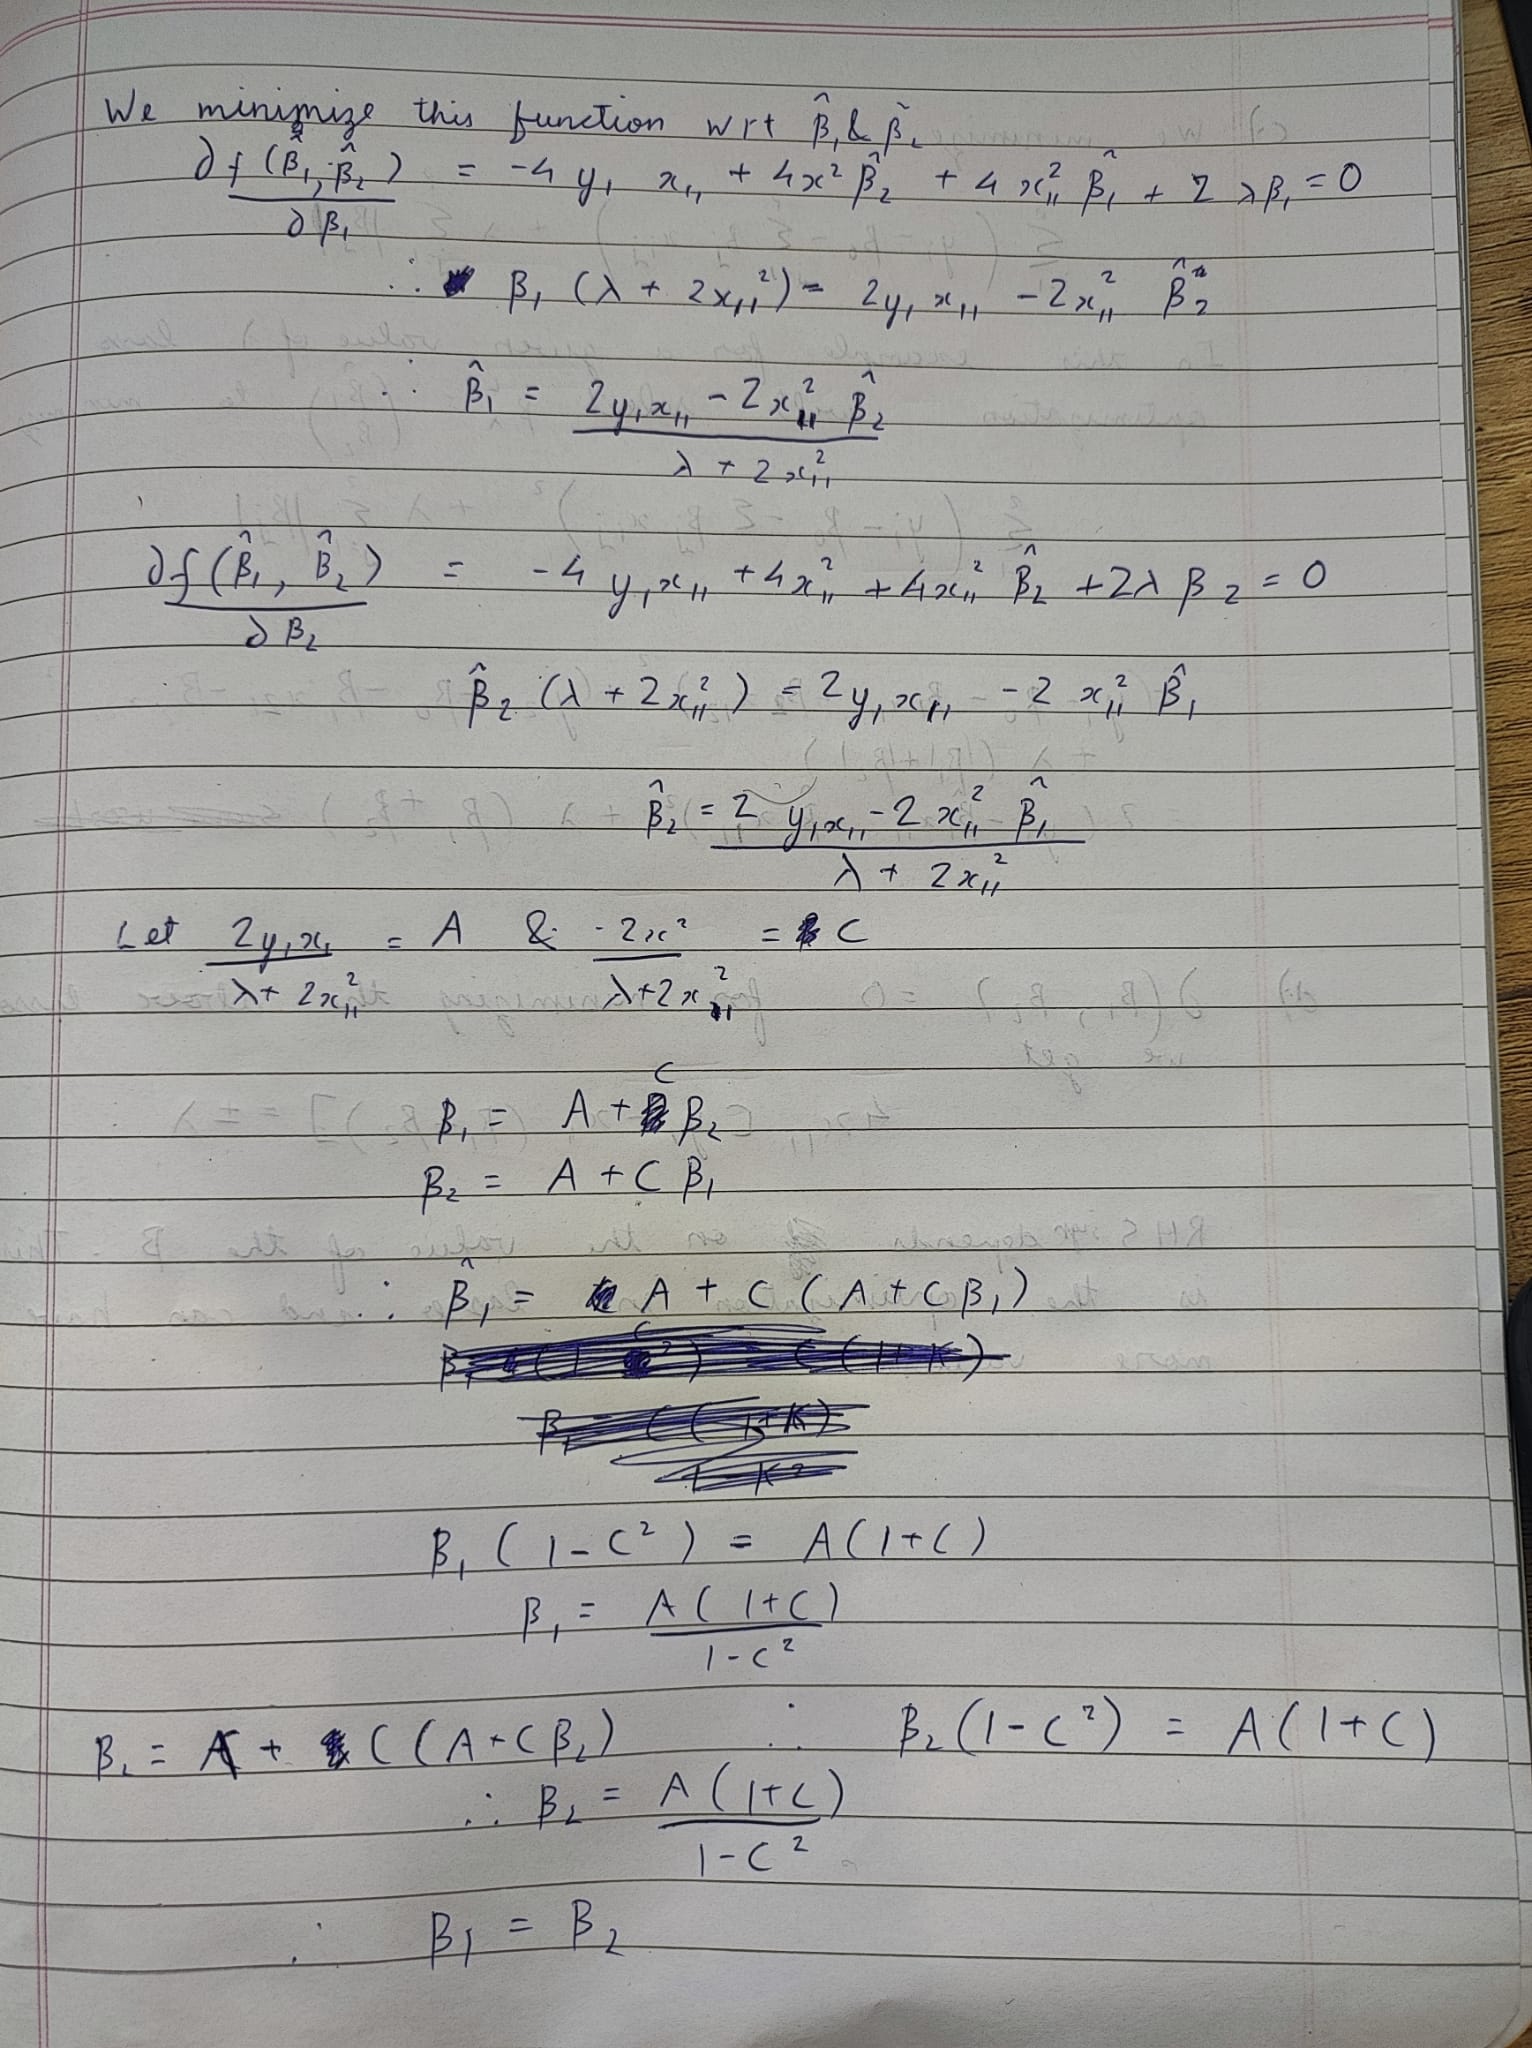 We minimize this function wrt β̂₁ & β̂₂
∂f(β̂₁, β̂₂) / ∂β₁ = -4 y₁ x₁₁ + 4x² β̂₂ + 4 x₁₁² β̂₁ + 2 λβ₁ = 0
∴ β₁ (λ + 2x₁₁²) = 2y₁ x₁₁ - 2x₁₁² β̂₂
∴ β̂₁ = (2y₁x₁₁ - 2x₁₁² β̂₂) / (λ + 2x₁₁²)
∂f(β̂₁, β̂₂) / ∂β₂ = -4 y₁x₁₁ + 4x₁₁² + 4x₁₁² β̂₂ + 2λ β₂ = 0
β̂₂ (λ + 2x₁₁²) = 2y₁x₁₁ - 2 x₁₁² β̂₁
β̂₂ = (2 y₁x₁₁ - 2 x₁₁² β̂₁) / (λ + 2x₁₁²)
Let 2y₁x₁ / (λ + 2x₁₁²) = A & -2x² / (λ+2x₁₁²) = C
β₁ = A + C β₂
β₂ = A + C β₁
∴ β̂₁ = A + C (A + C β₁)
β₁ (1 - C²) = A(1+C)
β₁ = A(1+C) / (1-C²)
β₂ = A + C(A+Cβ₂) ∴ β₂(1-C²) = A(1+C)
∴ β₂ = A(1+C) / (1-C²)
∴ β₁ = β₂